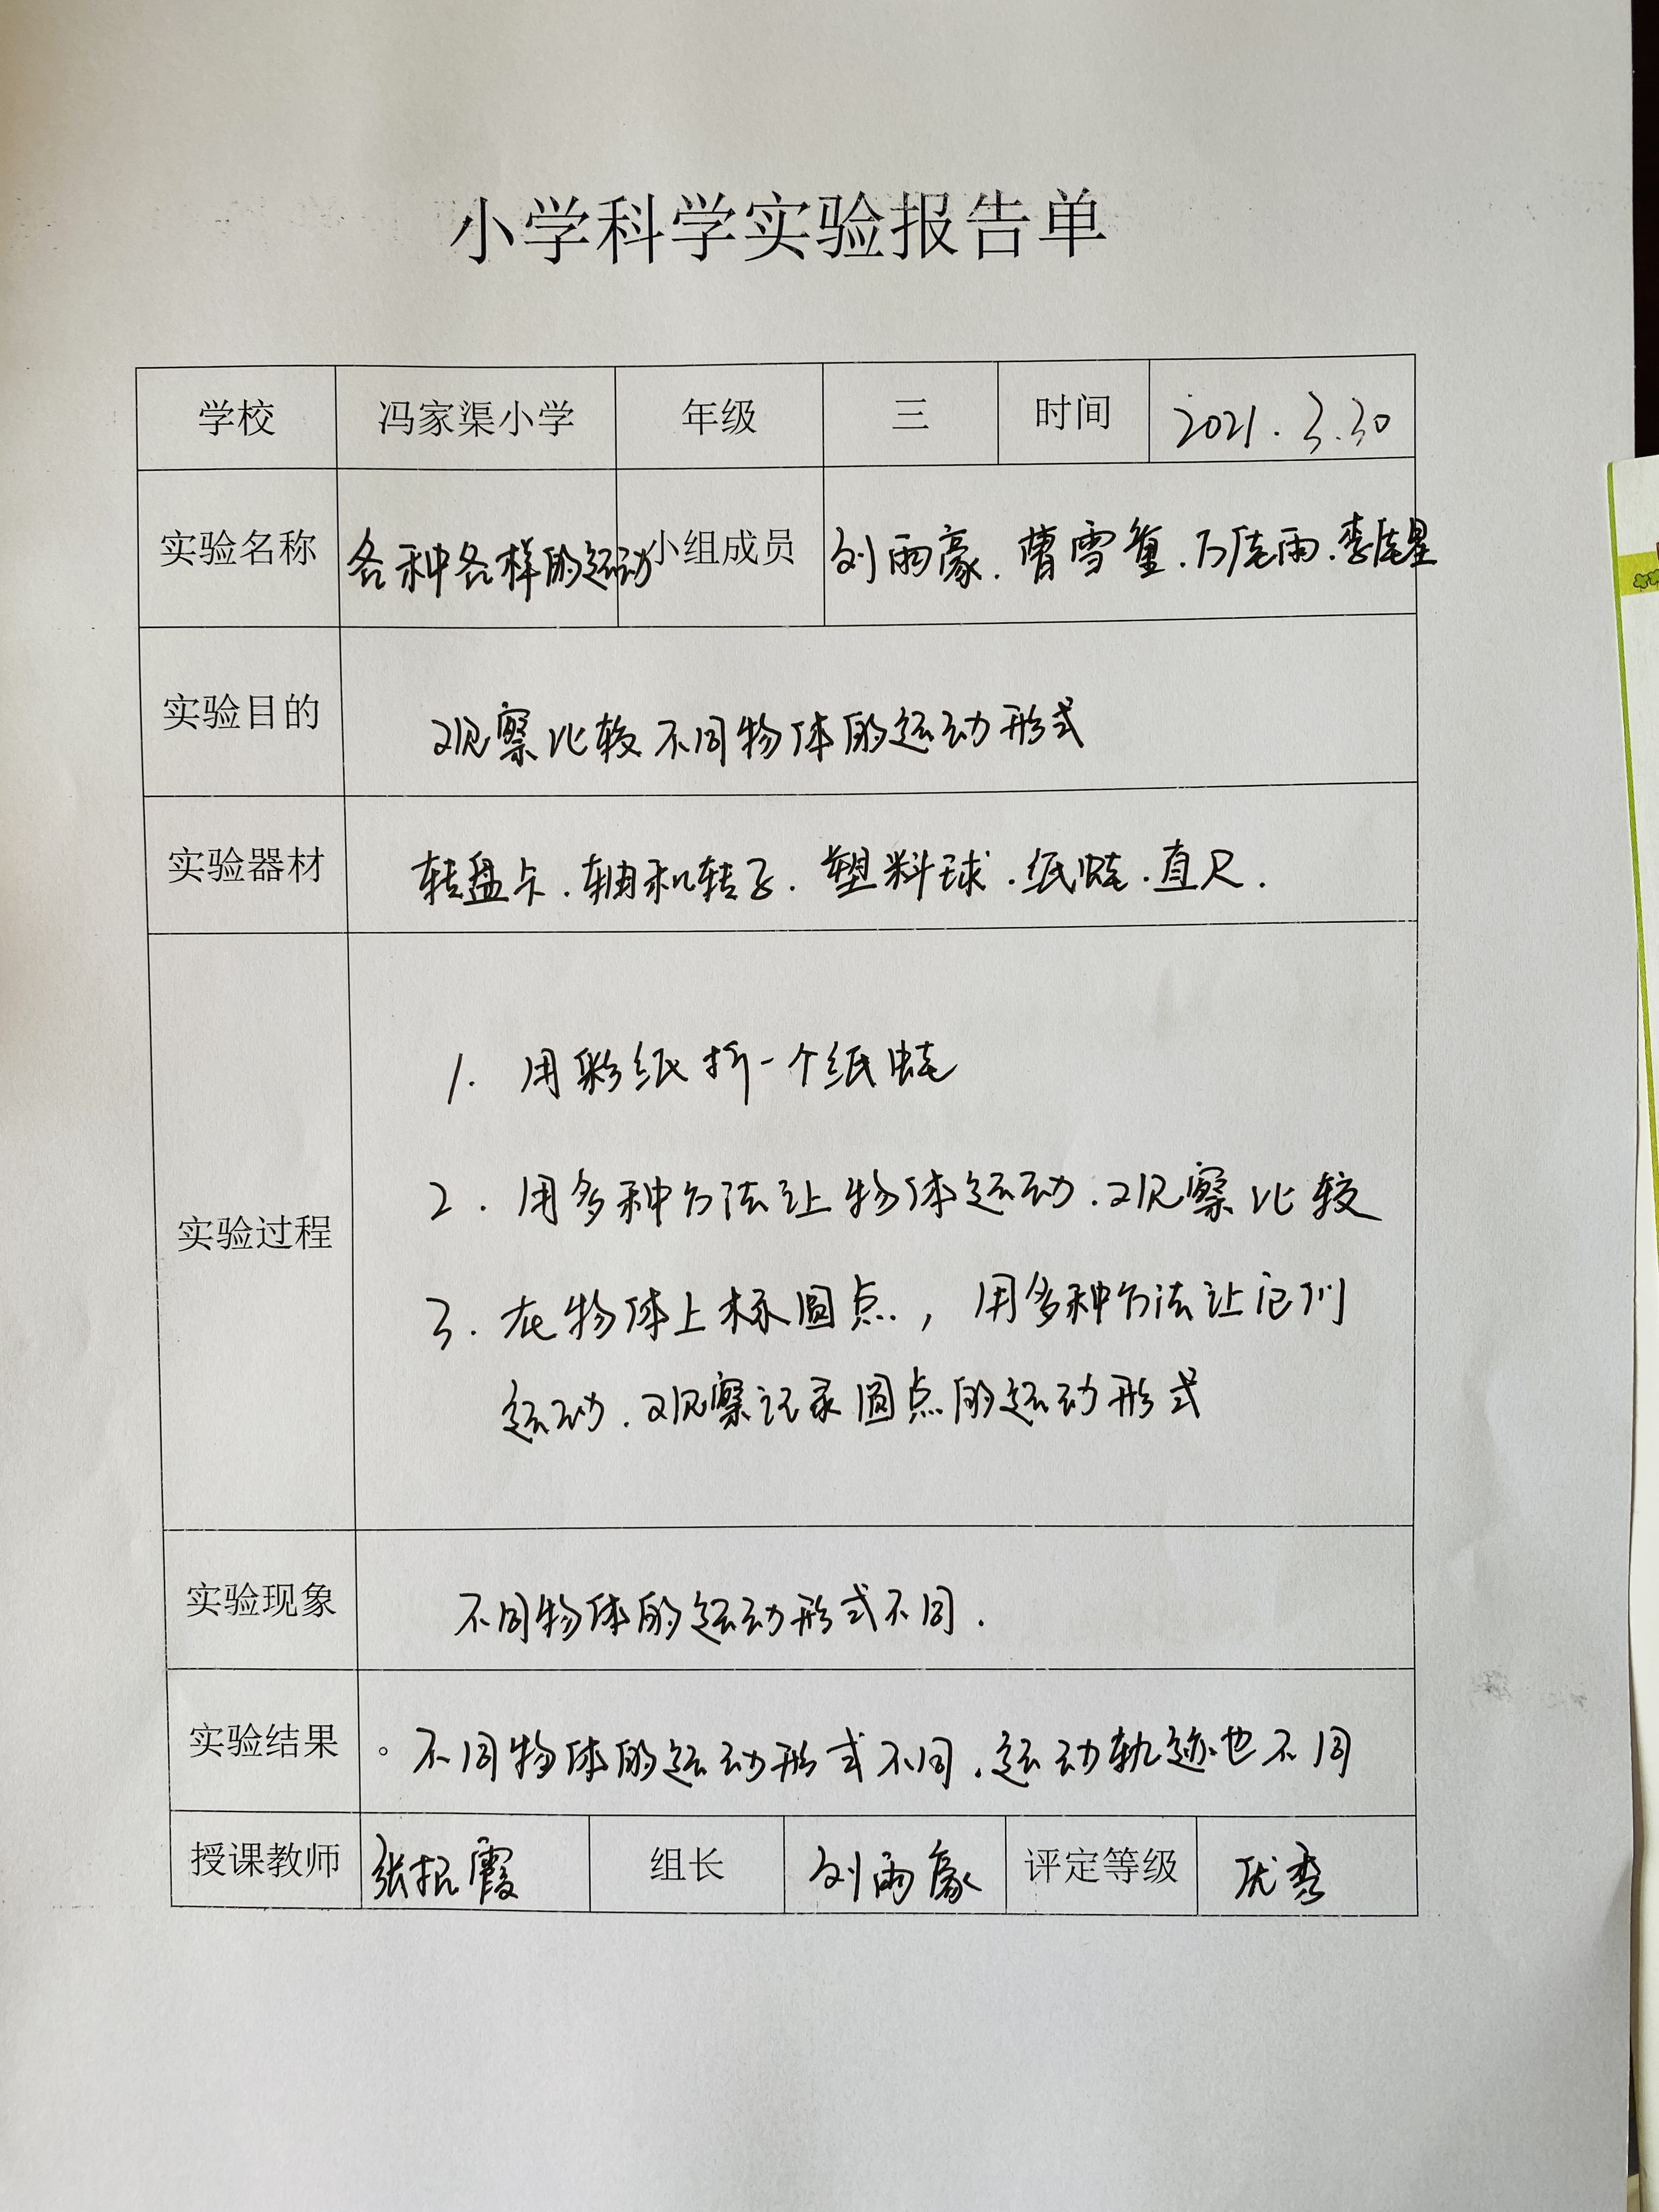 小学科学实验报告单
学校 冯家渠小学 年级 三 时间 2021.3.30
实验名称 各种各样的运动 小组成员 刘雨豪.曹雪.万佳雨.李佳星
实验目的 观察比较不同物体的运动形式
实验器材 转盘卡.轴和转子.塑料球.纸蛙.直尺.
实验过程
1. 用彩纸折一个纸蛙
2. 用多种方法让物体运动.观察比较
3. 在物体上标圆点,用多种方法让它们
运动.观察记录圆点的运动形式
实验现象 不同物体的运动形式不同.
实验结果 。不同物体的运动形式不同.运动轨迹也不同
授课教师 张 霞 组长 刘雨豪 评定等级 优秀